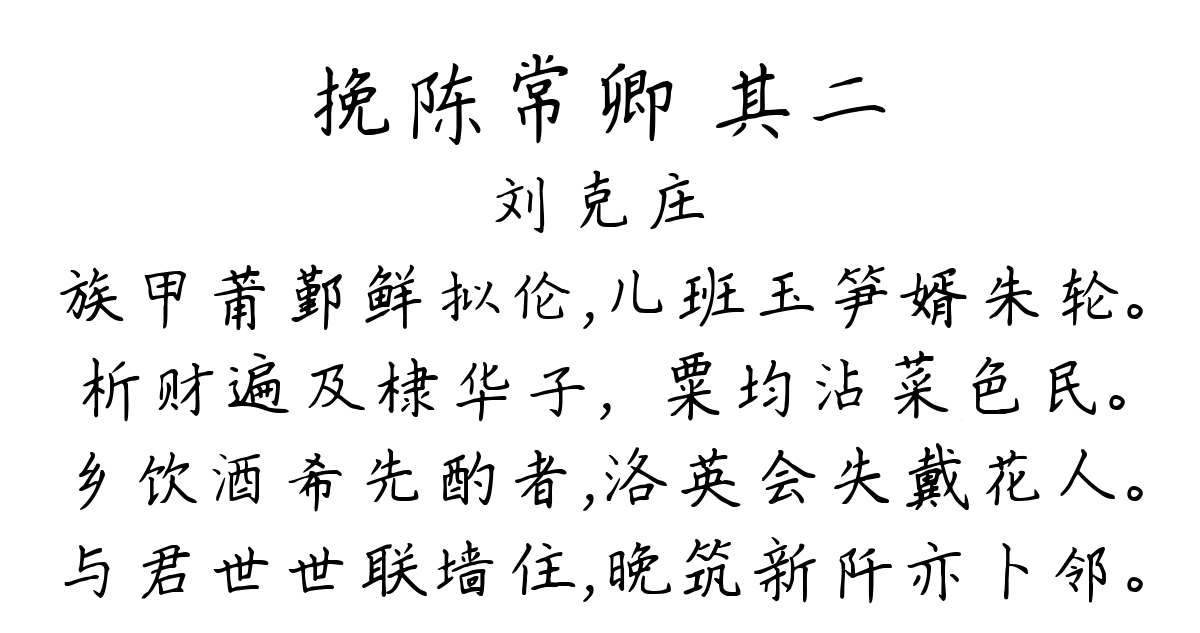 挽陈常卿 其二
刘克庄
族甲莆鄞鲜拟伦,儿班玉笋婿朱轮。
析财遍及棣华子，粟均沾菜色民。
乡饮酒希先酌者,洛英会失戴花人。
与君世世联墙住,晚筑新阡亦卜邻。